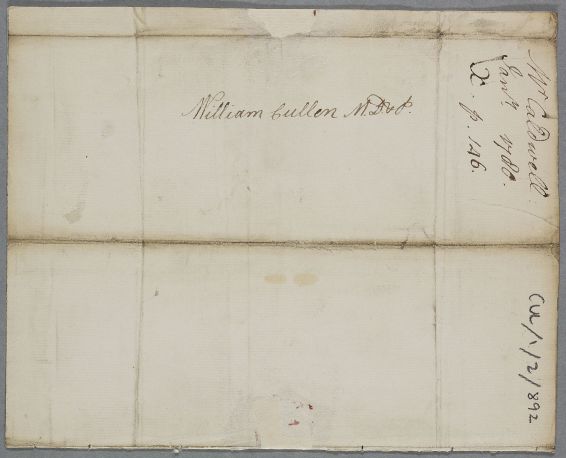 William Cullen M.D & P.
Mr Caldwell.
Janry 1780.
X. p. 146.
CUL/1/2/892